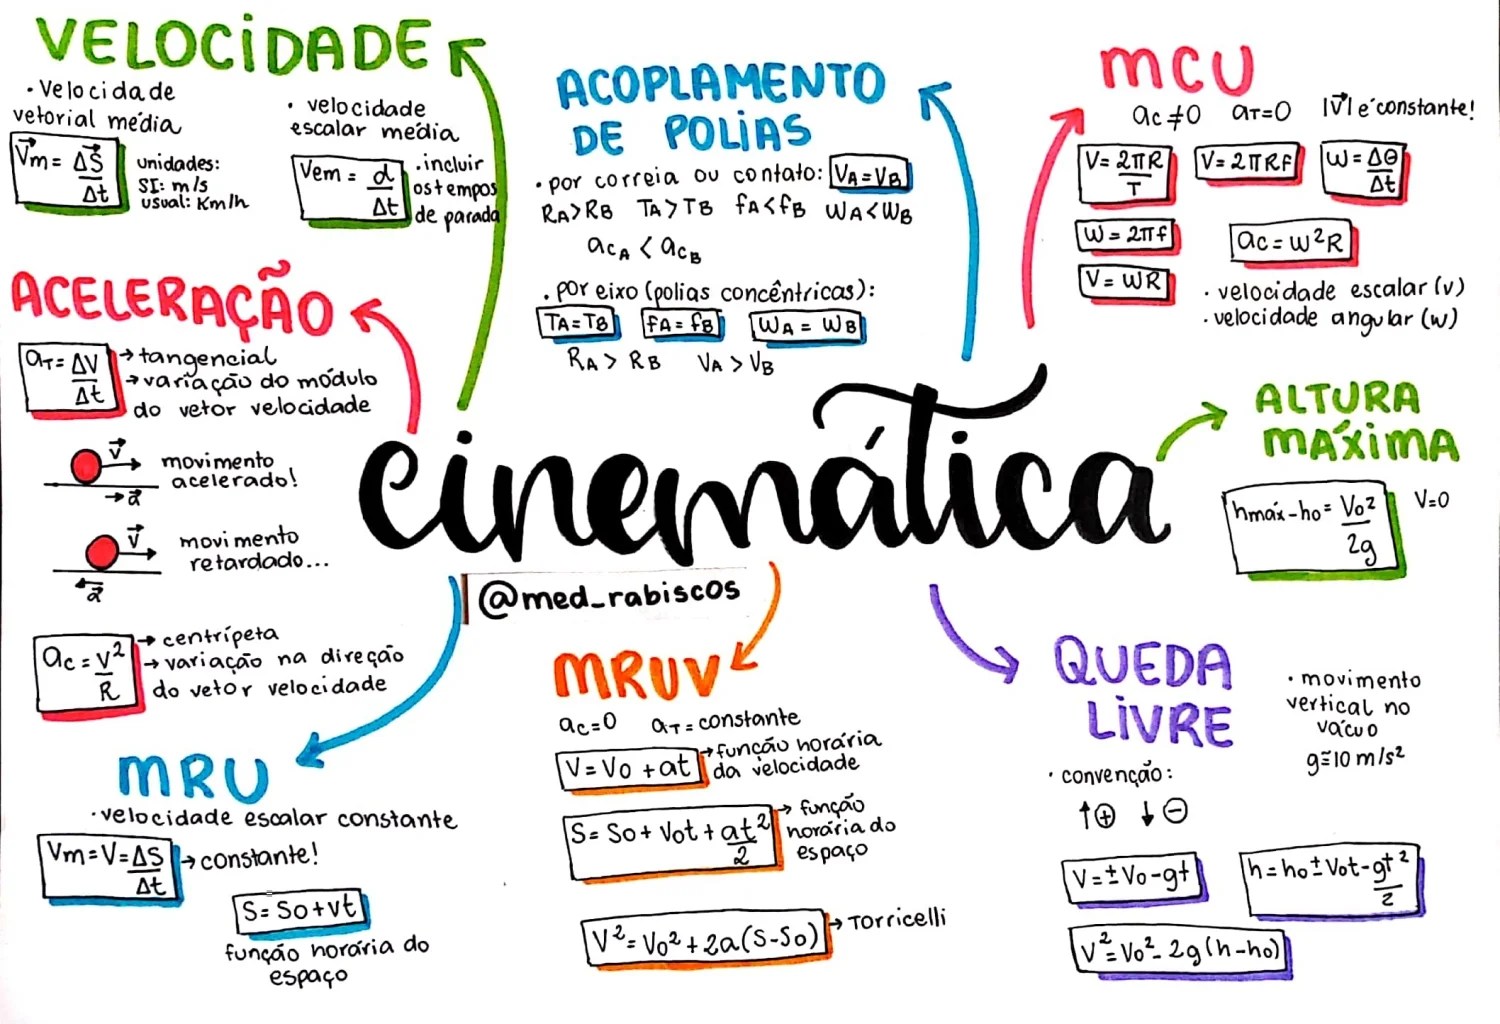 VELOCIDADE
• Velocidade
vetorial média
V⃗m = ΔS⃗/Δt
unidades:
SI: m/s
usual: Km/h
• velocidade
escalar média
Vem = d/Δt
• incluir
os tempos
de parada
ACOPLAMENTO
DE POLIAS
• por correia ou contato: VA = VB
RA > RB TA > TB fA < fB WA < WB
acA < acB
• por eixo (polias concêntricas):
TA = TB fA = fB WA = WB
RA > RB VA > VB
MCU
ac ≠ 0 aT = 0 |V⃗| é constante!
V = 2πR/T V = 2πRf W = Δθ/Δt
W = 2πf ac = W²R
V = WR
• velocidade escalar (v)
• velocidade angular (w)
ACELERAÇÃO
aT = ΔV/Δt
→ tangencial
→ variação do módulo
do vetor velocidade
V⃗
movimento
acelerado!
→ a⃗
V⃗
movimento
retardado...
← a⃗
ac = V²/R
→ centrípeta
→ variação na direção
do vetor velocidade
cinemática
@med_rabiscos
ALTURA
MÁXIMA
hmáx - ho = Vo²/2g V=0
MRU
• velocidade escalar constante
Vm = V = ΔS/Δt → constante!
S = So + vt
função horária do
espaço
MRUV
ac = 0 aT = constante
V = Vo + at → função horária
da velocidade
S = So + Vot + at²/2 → função
horária do
espaço
V² = Vo² + 2a(S-So) → Torricelli
QUEDA
LIVRE
• movimento
vertical no
vácuo
g ≅ 10 m/s²
• convenção:
↑⊕ ↓⊖
V = ± Vo - gt h = ho ± Vot - gt²/2
V² = Vo² - 2g(h-ho)